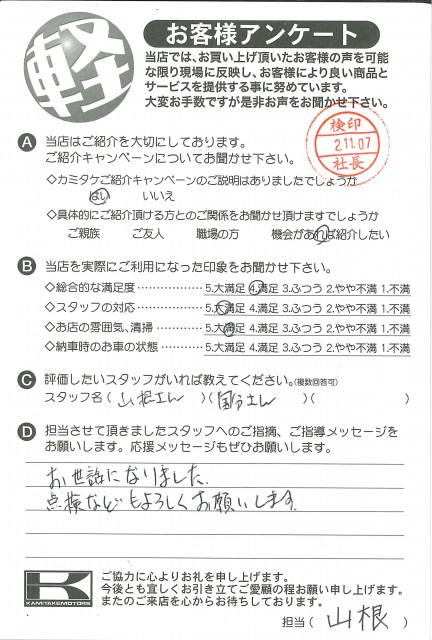 軽
お客様アンケート
当店では、お買い上げ頂いたお客様の声を可能
な限り現場に反映し、お客様により良い商品と
サービスを提供する事に努めています。
大変お手数ですが是非お声をお聞かせ下さい。
検印
2.11.07
社長
A 当店はご紹介を大切にしております。
ご紹介キャンペーンについてお聞かせ下さい。
◇カミタケご紹介キャンペーンのご説明はありましたでしょうか
はい いいえ
◇具体的にご紹介頂ける方とのご関係をお聞かせ頂けますでしょうか
ご親族 ご友人 職場の方 機会があれば紹介したい
B 当店を実際にご利用になった印象をお聞かせ下さい。
◇総合的な満足度 5.大満足 4.満足 3.ふつう 2.やや不満 1.不満
◇スタッフの対応 5.大満足 4.満足 3.ふつう 2.やや不満 1.不満
◇お店の雰囲気、清掃 5.大満足 4.満足 3.ふつう 2.やや不満 1.不満
◇納車時のお車の状態 5.大満足 4.満足 3.ふつう 2.やや不満 1.不満
C 評価したいスタッフがいれば教えてください。(複数回答可)
スタッフ名 ( 山根さん )( 国分さん )( )
D 担当させて頂きましたスタッフへのご指摘、ご指導メッセージを
お願いします。応援メッセージもぜひお願いします。
お世話になりました.
点検などもよろしくお願いします.
K
KAMITAKEMOTORS
ご協力に心よりお礼を申し上げます。
今後とも宜しくお引き立てご愛顧の程お願い申し上げます。
またのご来店を心からお待ちしております。
担当 ( 山根 )